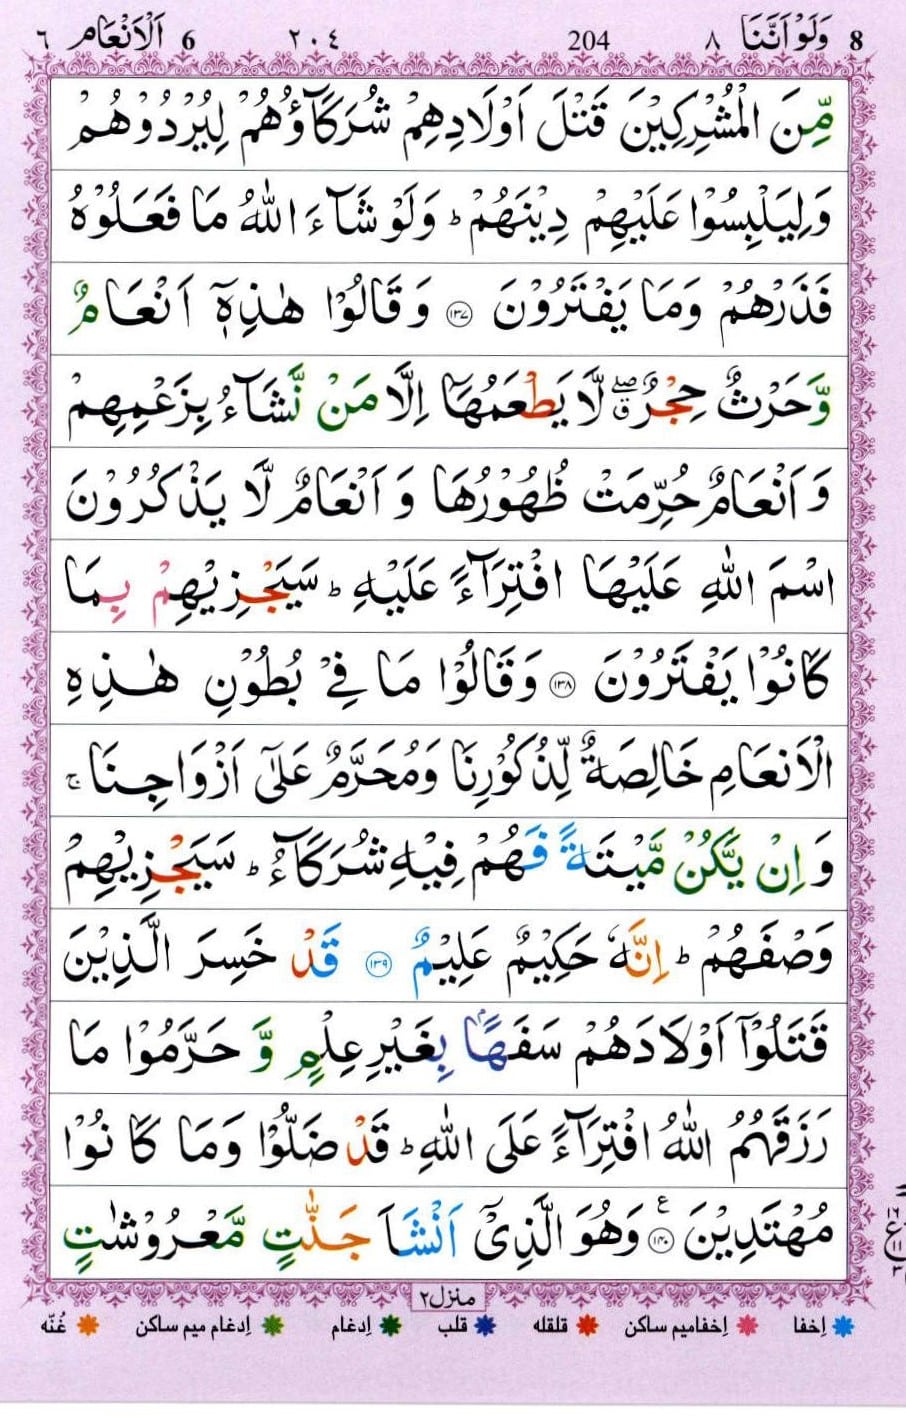 8 وَلَوْ اَنَّنَا ٨ 204 ٢٠٤ 6 اَلْاَنْعَام ٦
مِّنَ الْمُشْرِكِيْنَ قَتْلَ اَوْلَادِهِمْ شُرَكَآؤُهُمْ لِيُرْدُوْهُمْ
وَلِيَلْبِسُوْا عَلَيْهِمْ دِيْنَهُمْ ؕ وَلَوْ شَآءَ اللّٰهُ مَا فَعَلُوْهُ
فَذَرْهُمْ وَمَا يَفْتَرُوْنَ ﴿١٣٧﴾ وَقَالُوْا هٰذِهٖۤ اَنْعَامٌ
وَّحَرْثٌ حِجْرٌ ۖۗ لَّا يَطْعَمُهَاۤ اِلَّا مَنْ نَّشَآءُ بِزَعْمِهِمْ
وَاَنْعَامٌ حُرِّمَتْ ظُهُوْرُهَا وَاَنْعَامٌ لَّا يَذْكُرُوْنَ
اسْمَ اللّٰهِ عَلَيْهَا افْتِرَآءً عَلَيْهِ ؕ سَيَجْزِيْهِمْ بِمَا
كَانُوْا يَفْتَرُوْنَ ﴿١٣٨﴾ وَقَالُوْا مَا فِيْ بُطُوْنِ هٰذِهِ
الْاَنْعَامِ خَالِصَةٌ لِّذُكُوْرِنَا وَمُحَرَّمٌ عَلٰٓى اَزْوَاجِنَا ۚ
وَاِنْ يَّكُنْ مَّيْتَةً فَهُمْ فِيْهِ شُرَكَآءُ ؕ سَيَجْزِيْهِمْ
وَصْفَهُمْ ؕ اِنَّهٗ حَكِيْمٌ عَلِيْمٌ ﴿١٣٩﴾ قَدْ خَسِرَ الَّذِيْنَ
قَتَلُوْۤا اَوْلَادَهُمْ سَفَهًاۢ بِغَيْرِ عِلْمٍ وَّحَرَّمُوْا مَا
رَزَقَهُمُ اللّٰهُ افْتِرَآءً عَلَى اللّٰهِ ؕ قَدْ ضَلُّوْا وَمَا كَانُوْا
مُهْتَدِيْنَ ﴿١٤٠﴾ ع وَهُوَ الَّذِيْۤ اَنْشَاَ جَنّٰتٍ مَّعْرُوْشٰتٍ
منزل ٢
اِخفا اِخفامیم ساکن قلقله قلب اِدغام اِدغام میم ساکن غُنّه